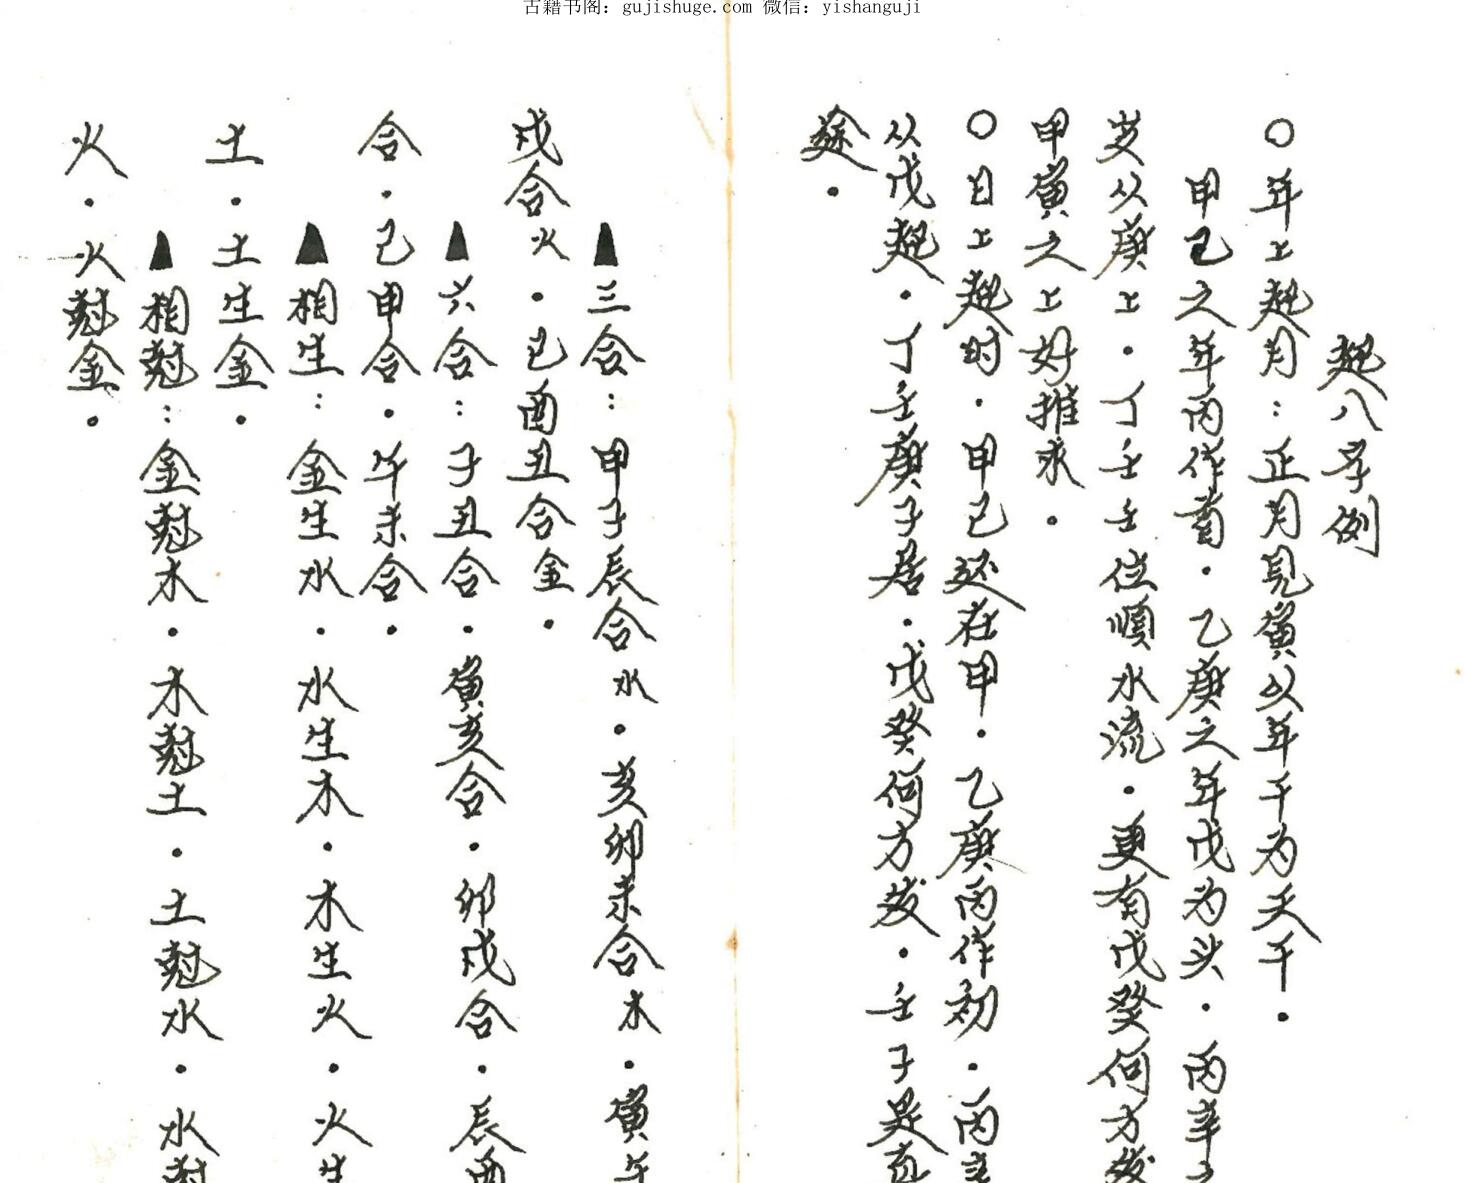 古籍书阁：gujishuge.com 微信：yishanguji
起八字例
○年上起月：正月見寅从年干为天干．
甲己之年丙作首．乙庚之年戊为头．丙辛之
岁从庚上．丁壬壬位順水流．更有戊癸何方发
甲寅之上好推求．
○日上起时．甲己还在甲．乙庚丙作初．丙辛
从戊起．丁壬庚子居．戊癸何方发．壬子是真
途．
▲三合：申子辰合水．亥卯未合木．寅午
戌合火．巳酉丑合金．
▲六合：子丑合．寅亥合．卯戌合．辰酉
合．巳申合．午未合．
▲相生：金生水．水生木．木生火．火生
土．土生金．
▲相尅：金尅木．木尅土．土尅水．水尅
火．火尅金．